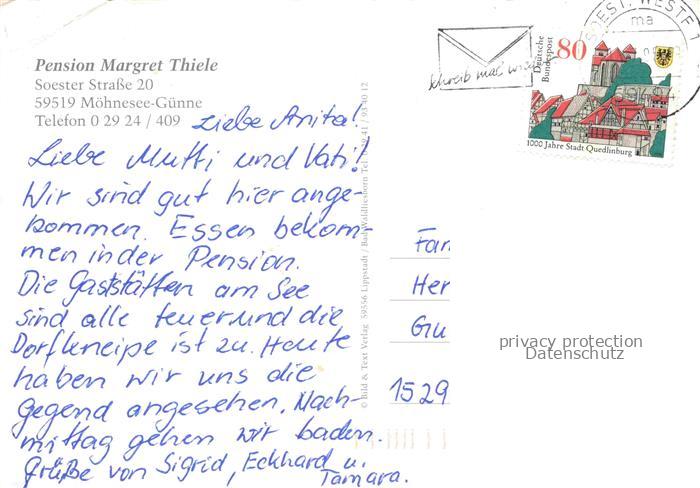 Pension Margret Thiele
Soester Straße 20
59519 Möhnesee-Günne
Telefon 0 29 24 / 409
Liebe Anita!
Liebe Mutti und Vati!
Wir sind gut hier ange-
kommen. Essen bekom-
men in der Pension.
Die Gaststätten am See
sind alle teuer und die
Dorfkneipe ist zu. Heute
haben wir uns die
Gegend angesehen. Nach-
mittag gehen wir baden.
Grüße von Sigrid, Eckhard u.
Tamara.
© Bild & Text Verlag 59556 Lippstadt / Bad Waldliesborn
Schreib mal wieder
SOEST, WESTF 1
ma
Deutsche
Bundespost
80
1000 Jahre Stadt Quedlinburg
Fam
Her
Gu
1529
privacy protection
Datenschutz